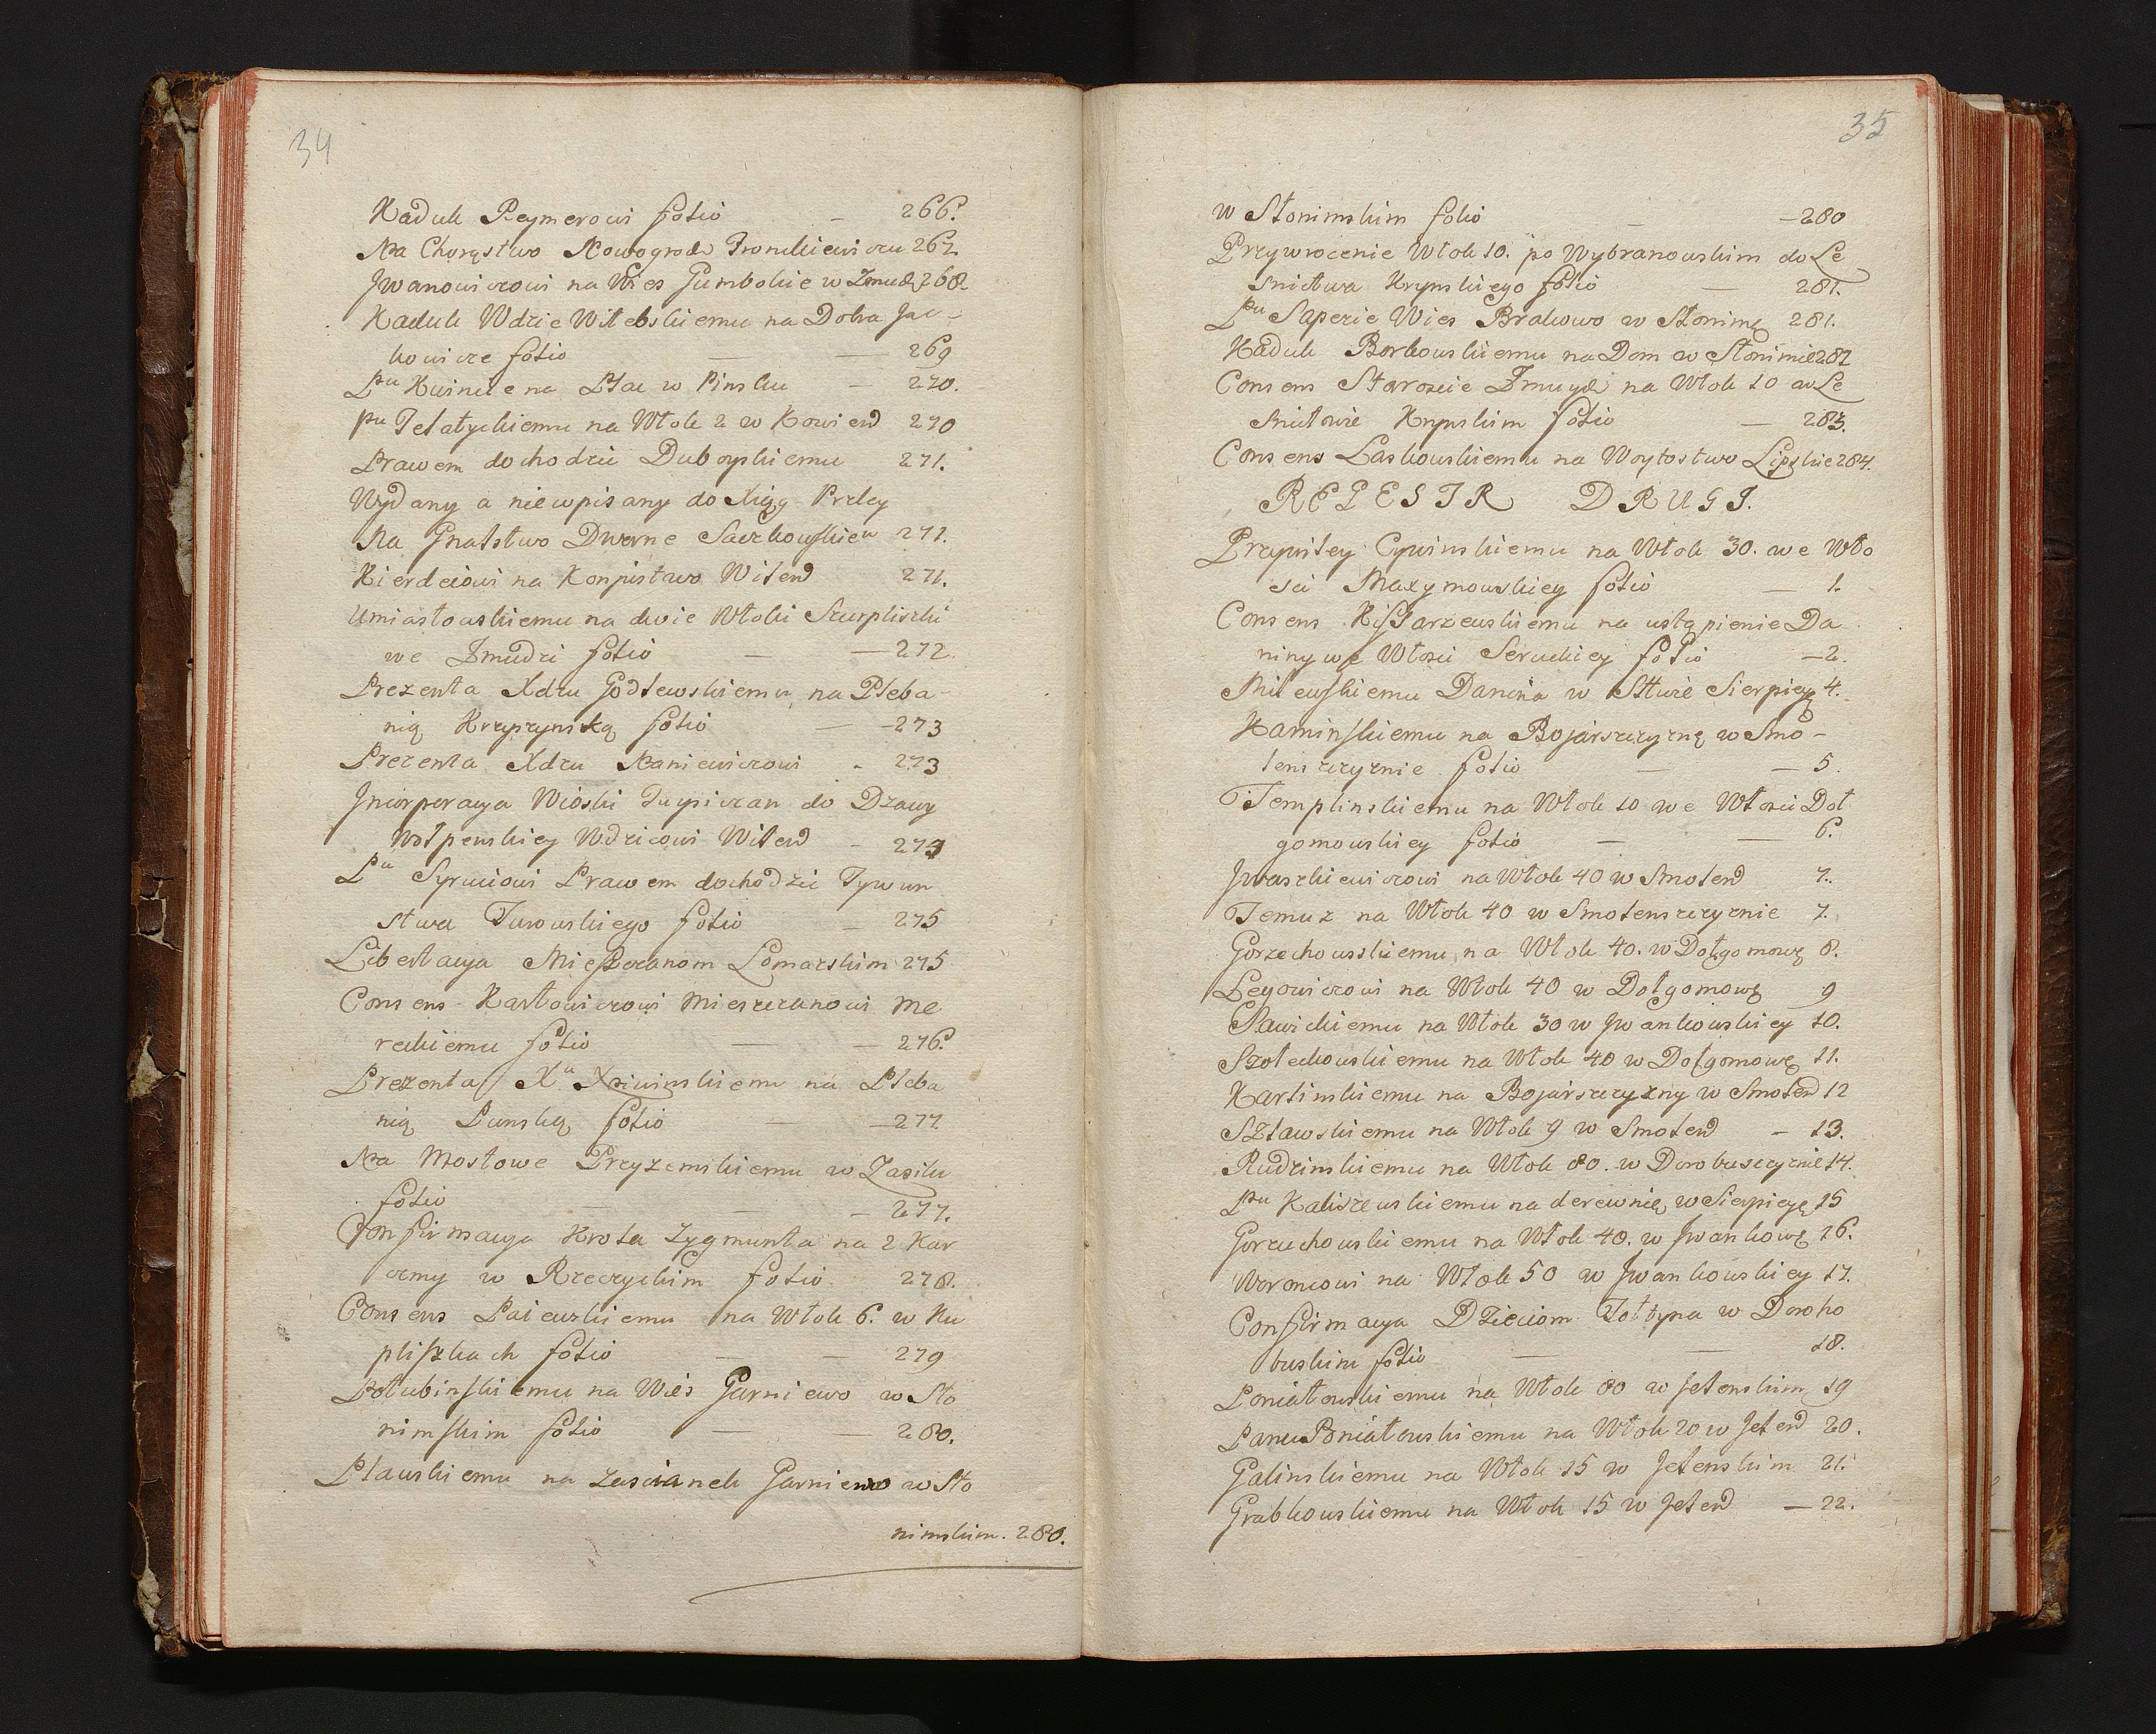 34
Kaduk Reymerowi folio — 266.
Na Chorąstwo Nowogrod Fronckiewiczu 267.
Jwanowiczowi na Wies Gumbokie w Zmudz 268.
Kaduk Wdzie Witebskiemu na Dobra Jac-
kowicze folio — — 269
Pu Kuincie na Plac w Pinsku — 270.
Pu Telatyckiemu na Włok 2 w Kowien 270
Prawem dochodzić Duboyskiemu 271.
Wydany a niewpisany do Xiąg Przley
Na Gnatstwo Dworne Saczkowskieu 271.
Kierdeiowi na Konjustwo Witens 271.
Umiastowskiemu na dwie Włoki Szurpliszki
we Zmudzi folio — — 272
Prezenta Xdzu Godlewskiemu na Pleba-
nią Krzyżynską folio — 273
Prezenta Xdzu Naniewiczowi - 273
Jnkorporacya Wioski Tupiczan do Dzawy
Wołpenskiey Wdzicowi Witens — 274
Pu Syruciowi Prawem dochodzić Tywun
stwa Turowskiego folio — 275
Libertacya Mieszczanom Łomazskim 275
Consens Karłowiczowi Mieszczanowi Me
reckiemu folio — — 276.
Prezenta Xu Krziwinskiemu na Pleba
nią Punską folio — — 277
Na Mostowe Przyzemskiemu w Zasilu
folio — — — 277.
Confirmacya Krola Zygmunta na 2 Kar
czmy w Rzeczyckim folio 278.
Consens Paiewskiemu na Włok 6. w Ku
pliszkach folio — — 279
Połubinskiemu na Wies Garniewo w Sło
nimskim folio — — 280.
Pławskiemu na Zascianek Garniewo w Sło
nimskim. 280.
35
w Słonimskim folio — — 280
Przywrocenie Włok 10. po Wybranowskim do Le
snictwa Krynskiego folio — 281.
Pu Sapezie Wies Brakowo w Słonimę 281.
Kaduk Borkowskiemu na Dom w Słonimie 282
Consens Staroscie Zmuyd na Włok 10 w Le
snictwie Krynskim folio — 283.
Consens Laskowskiemu na Woytostwo Lipskie 284.
REGESTR DRUGI.
Przywiley Cywinskiemu na Włok 30. we Wło
sci Maxymowskiey folio — 1.
Consens Kissarzewskiemu na ustąpienie Da
niny we Włosci Seruckiey folio — 2.
Milewskiemu Danina w Sttwie Sierpieyę 4.
Kaminskiemu na Bojarszczyznę w Smo-
lenszczyznie folio — — 5.
Templinskiemu na Włok 10 we Włosci Doł
gomowskiey folio — — 6.
Jwaszkiewiczowi na Włok 40 w Smolens 7.
Temuz na Włok 40 w Smolenszczyznie 7.
Gorzechowskiemu na Włok 40. w Dołgomowę 8.
Legowiczowi na Włok 40 w Dołgomowę 9
Sawickiemu na Włok 30 w Jwankowskiey 10.
Szołeckowskiemu na Włok 40 w Dołgomowę 11.
Karlinskiemu na Bojarszczyzny w Smolens 12
Szławskiemu na Włok 9 w Smolens — 13.
Rudzinskiemu na Włok 80. w Dorobuszczyznie 14.
Pu Kaliszewskiemu na derewnię w Sierpieyę 15
Gorzuchowskiemu na Włok 40. w Jwankowę 16.
Woroncowi na Włok 50 w Jwankowskiey 17.
Confirmacya Dzieciom Zołtyna w Doroho
buskim folio — — 18.
Poniatowskiemu na Włok 80 w Jelenskim 19
Panu Poniatowskiemu na Włok 20 w Jelens 20.
Galinskiemu na Włok 15 w Jelenskim 21.
Grabkowskiemu na Włok 15 w Jelens — 22.